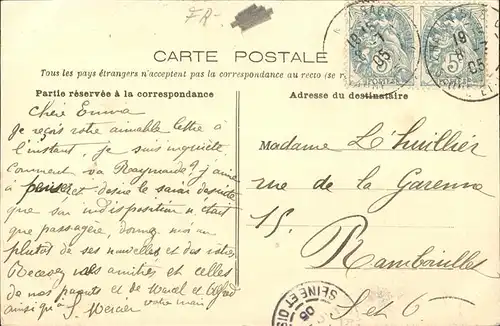 FR-
CARTE POSTALE
Tous les pays étrangers n'acceptent pas la correspondance au recto (se re
Partie réservée à la correspondance
Adresse du destinataire
Chère Emma
Je reçois votre aimable lettre à
l'instant, je suis inquiète
comment va Raymonde? j'aime
à penser et desire le savoir de suite
que son indisposition n'était
que passagère, donnez moi au
plutot de ses nouvelles et des votres
Recevez nos amitiés et celles
de nos parents et de Marcel et
ainsi qu'à votre mari
S. Mercier
Madame L'huillier
rue de la Garenne
15.
Rambouillet
S et O
19
05
5c
POSTES
SEINE ET OIS
05